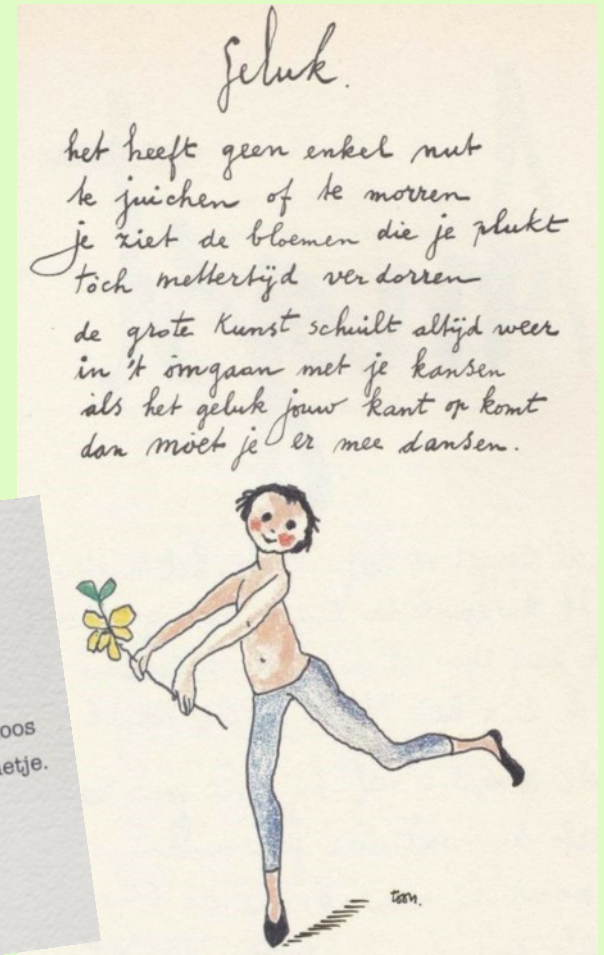 Geluk.
het heeft geen enkel nut
te juichen of te morren
je ziet de bloemen die je plukt
tòch mettertijd verdorren
de grote Kunst schuilt altijd weer
in 't omgaan met je kansen
als het geluk jouw kant op komt
dan moet je er mee dansen.
toon.